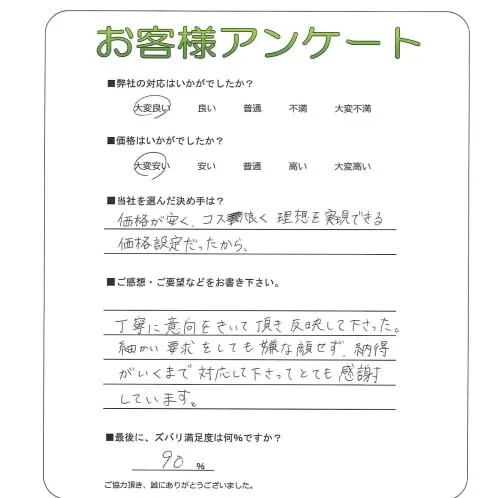 お客様アンケート
■弊社の対応はいかがでしたか？
大変良い 良い 普通 不満 大変不満
■価格はいかがでしたか？
大変安い 安い 普通 高い 大変高い
■当社を選んだ決め手は？
価格が安く、コス 良く 理想を実現できる
価格設定だったから。
■ご感想・ご要望などをお書き下さい。
丁寧に意向をきいて頂き反映して下さった。
細かい要求をしても嫌な顔せず、納得
がいくまで対応して下さってとても感謝
しています。
■最後に、ズバリ満足度は何%ですか？
90 %
ご協力頂き、誠にありがとうございました。